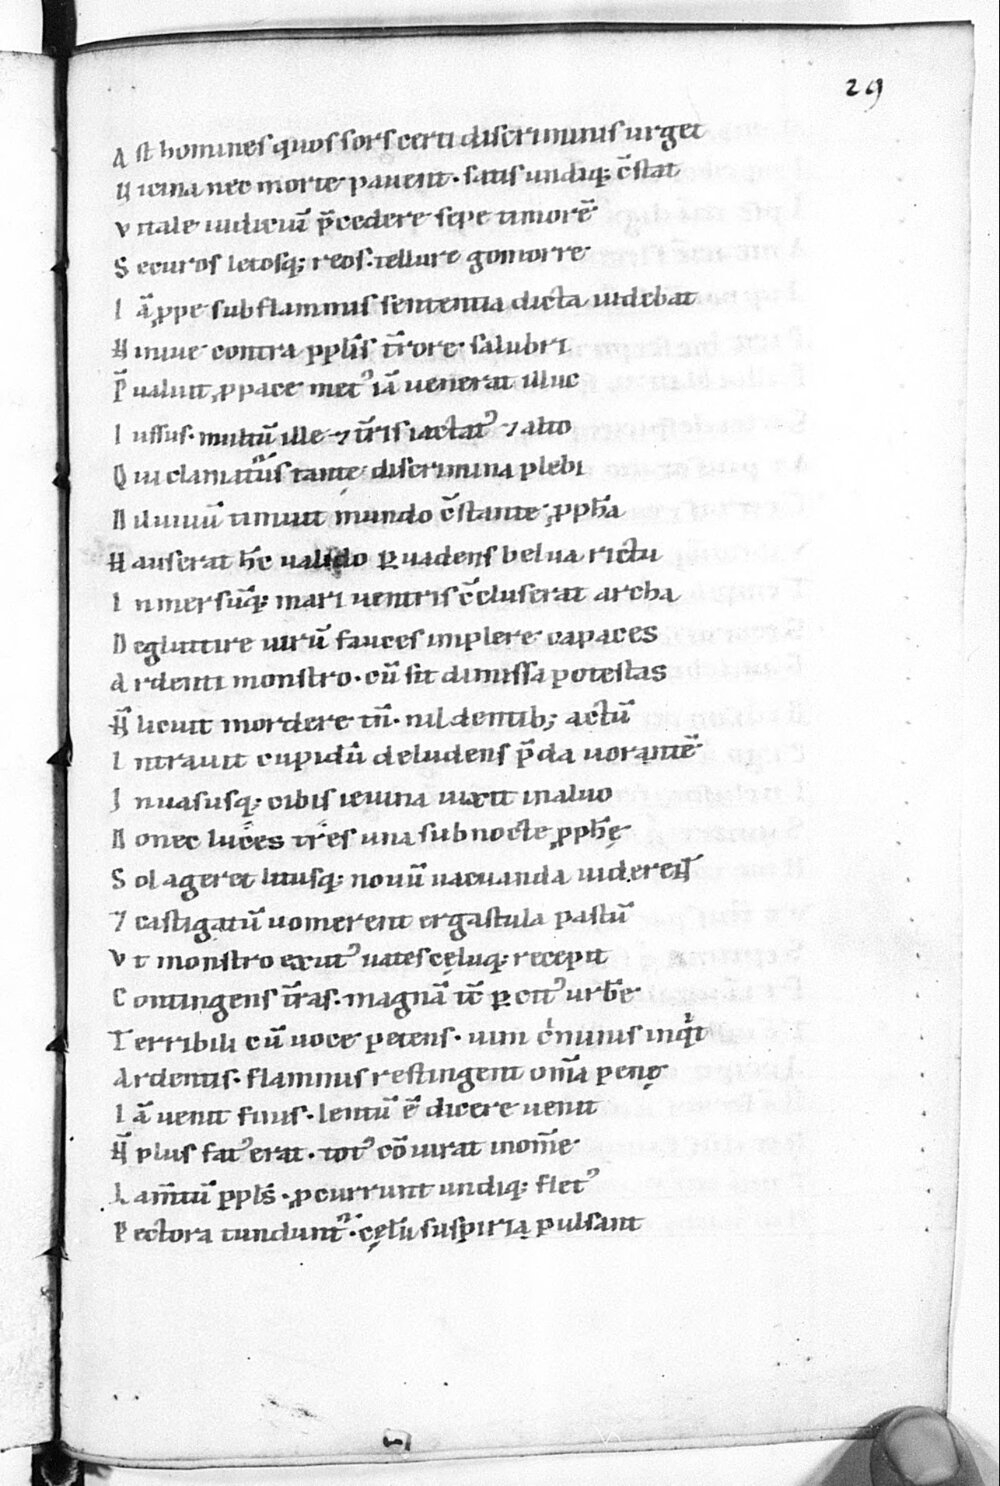 29
Ast homines quos sors certi discriminis urget
Vicina nec morte pauent. satis undiq; c̄stat
Vitale iudiciū p̄cedere sepe timorē
Securos letosq; reos. tellure gomorre
Iā ꝓpe sub flammis sententia dicta uidebat
Niniue contra ppl̄is t̄rore salubri
P̄ualuit, ꝓ pace met᾿ iā uenerat illuc
Iussus. multū ille ⁊ t̄ris iactat᾿ ⁊ alto
Qui clamatur᾿ tantę discrimina plebi
Diluuiū timuit mundo c̄stante ꝓph̄a
Hauserat h̄c ualido ꝑuadens belua rictu
Inmersūq; mari uentris c̄cluserat archa
Degluttire uirū fauces implere capaces
Ardenti monstro. cū sit dimissa potestas
N̄ licuit mordere tn̄. nil dentib; actū
Intrauit cupidū deludens p̄da uorantē
Inuasusq; cibis ieiuna uixit in aluo
Donec luces tres una sub nocte ꝓph̄ę
Sol ageret litusq; nouū uacuanda uideret
⁊ castigatū uomerent ergastula pastū
Vt monstro exut᾿ uates cęlūq; recepit
Contingens t̄ras. magnā tc̄ ꝑcit᾿ urbē
Terribili cū uoce petens. uim c̄minus inqͥt
Ardentis. flammis restingent om̄a penę
Iā uenit finis. lentū ē dicere uenit
N̄ plus fat᾿ erat. tot᾿ cōuirat in om̄e
Lam̄tū ppl̄s. ꝓcurrunt undiq; flet᾿
Pectora tundunt᾿. cęlū suspiria pulsant